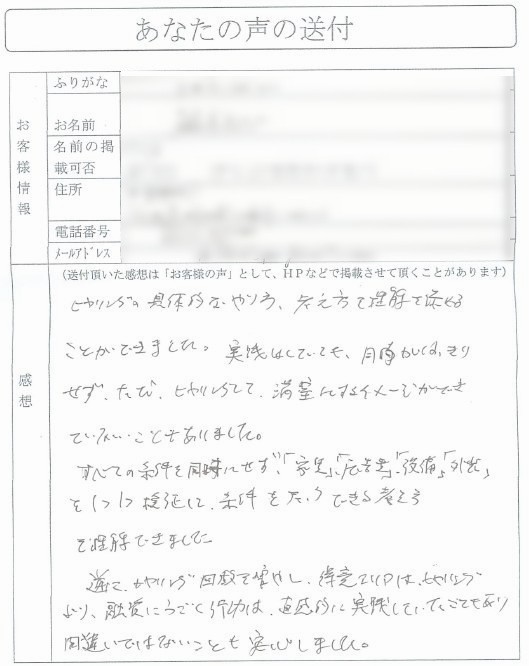 あなたの声の送付
お客様情報
ふりがな
お名前
名前の掲
載可否
住所
電話番号
メールアドレス
感想
(送付頂いた感想は「お客様の声」として、HPなどで掲載させて頂くことがあります)
ヒヤリングの具体的なやり方、考え方で理解を深める
ことができました。実践はしていても、目的がはっきり
せず、ただ、ヒヤリングして、満室にするイメージができ
ていないこともありました。
すべての条件を同時にせず、「家賃」、「広告費」、「設備」、「外観」
を1つ1つ検証して、条件を できる考え方
を理解できました
逆に、ヒヤリング回数を増やし、得意エリアは、ヒヤリング
より、融資にうごく行動は、直感的に実践していたことであり
間違いではないことも実感しました。